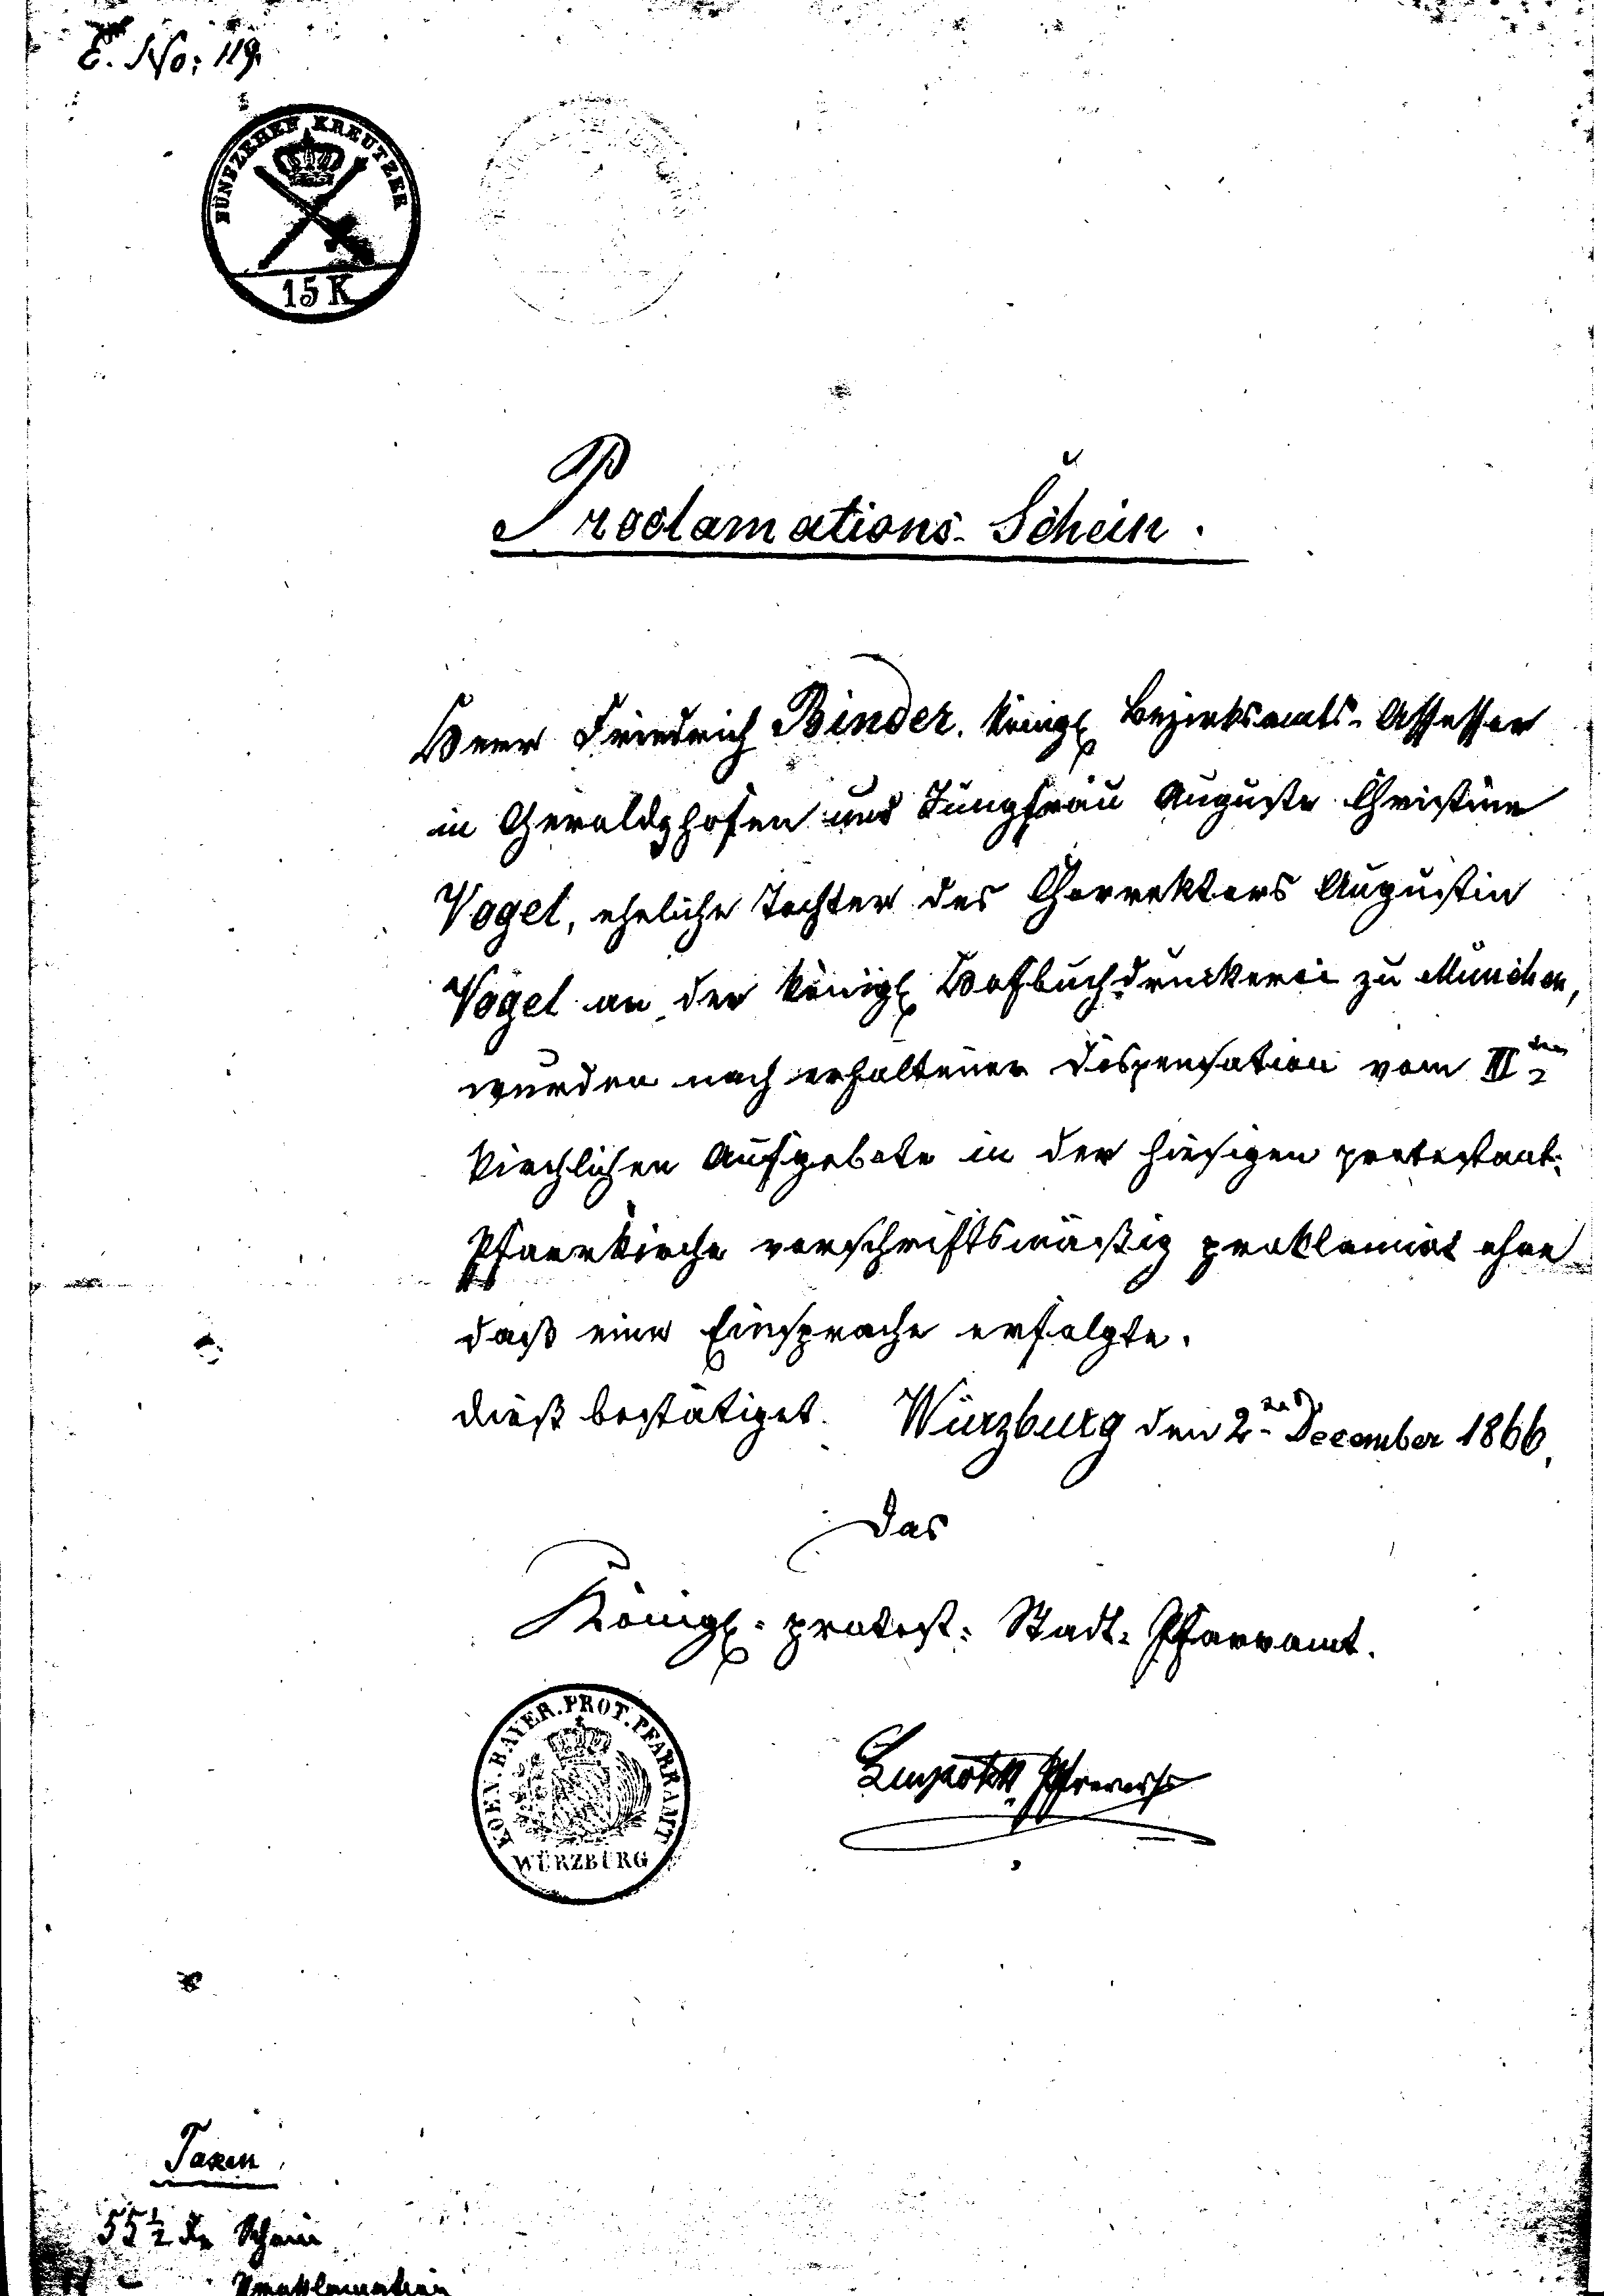 E. No: 119.
FÜNFZEHEN KREUTZER
15 K
Proclamations-Schein.
Herr Friedrich Binder, königl. Bezirksamts-Assessor
in Geroldshofen und Jungfrau Auguste Christine
Vogel, eheliche Tochter des Correktors Augustin
Vogel an der königl. Hofbuchdruckerei zu München,
wurden nach erhaltener Dispensation vom III ten
kirchlichen Aufgebote in der hiesigen protestant.
Pfarrkirche vorschriftsmäßig proklamirt ohne
daß eine Einsprache erfolgte.
Dieß bestätiget. Würzburg den 2ten December 1866.
Das
Königl. protest. Stadt-Pfarramt.
KOEN. BAYER. PROT. PFARRAMT
WÜRZBURG
Taxen
55 1/2 Schein
Proklamation